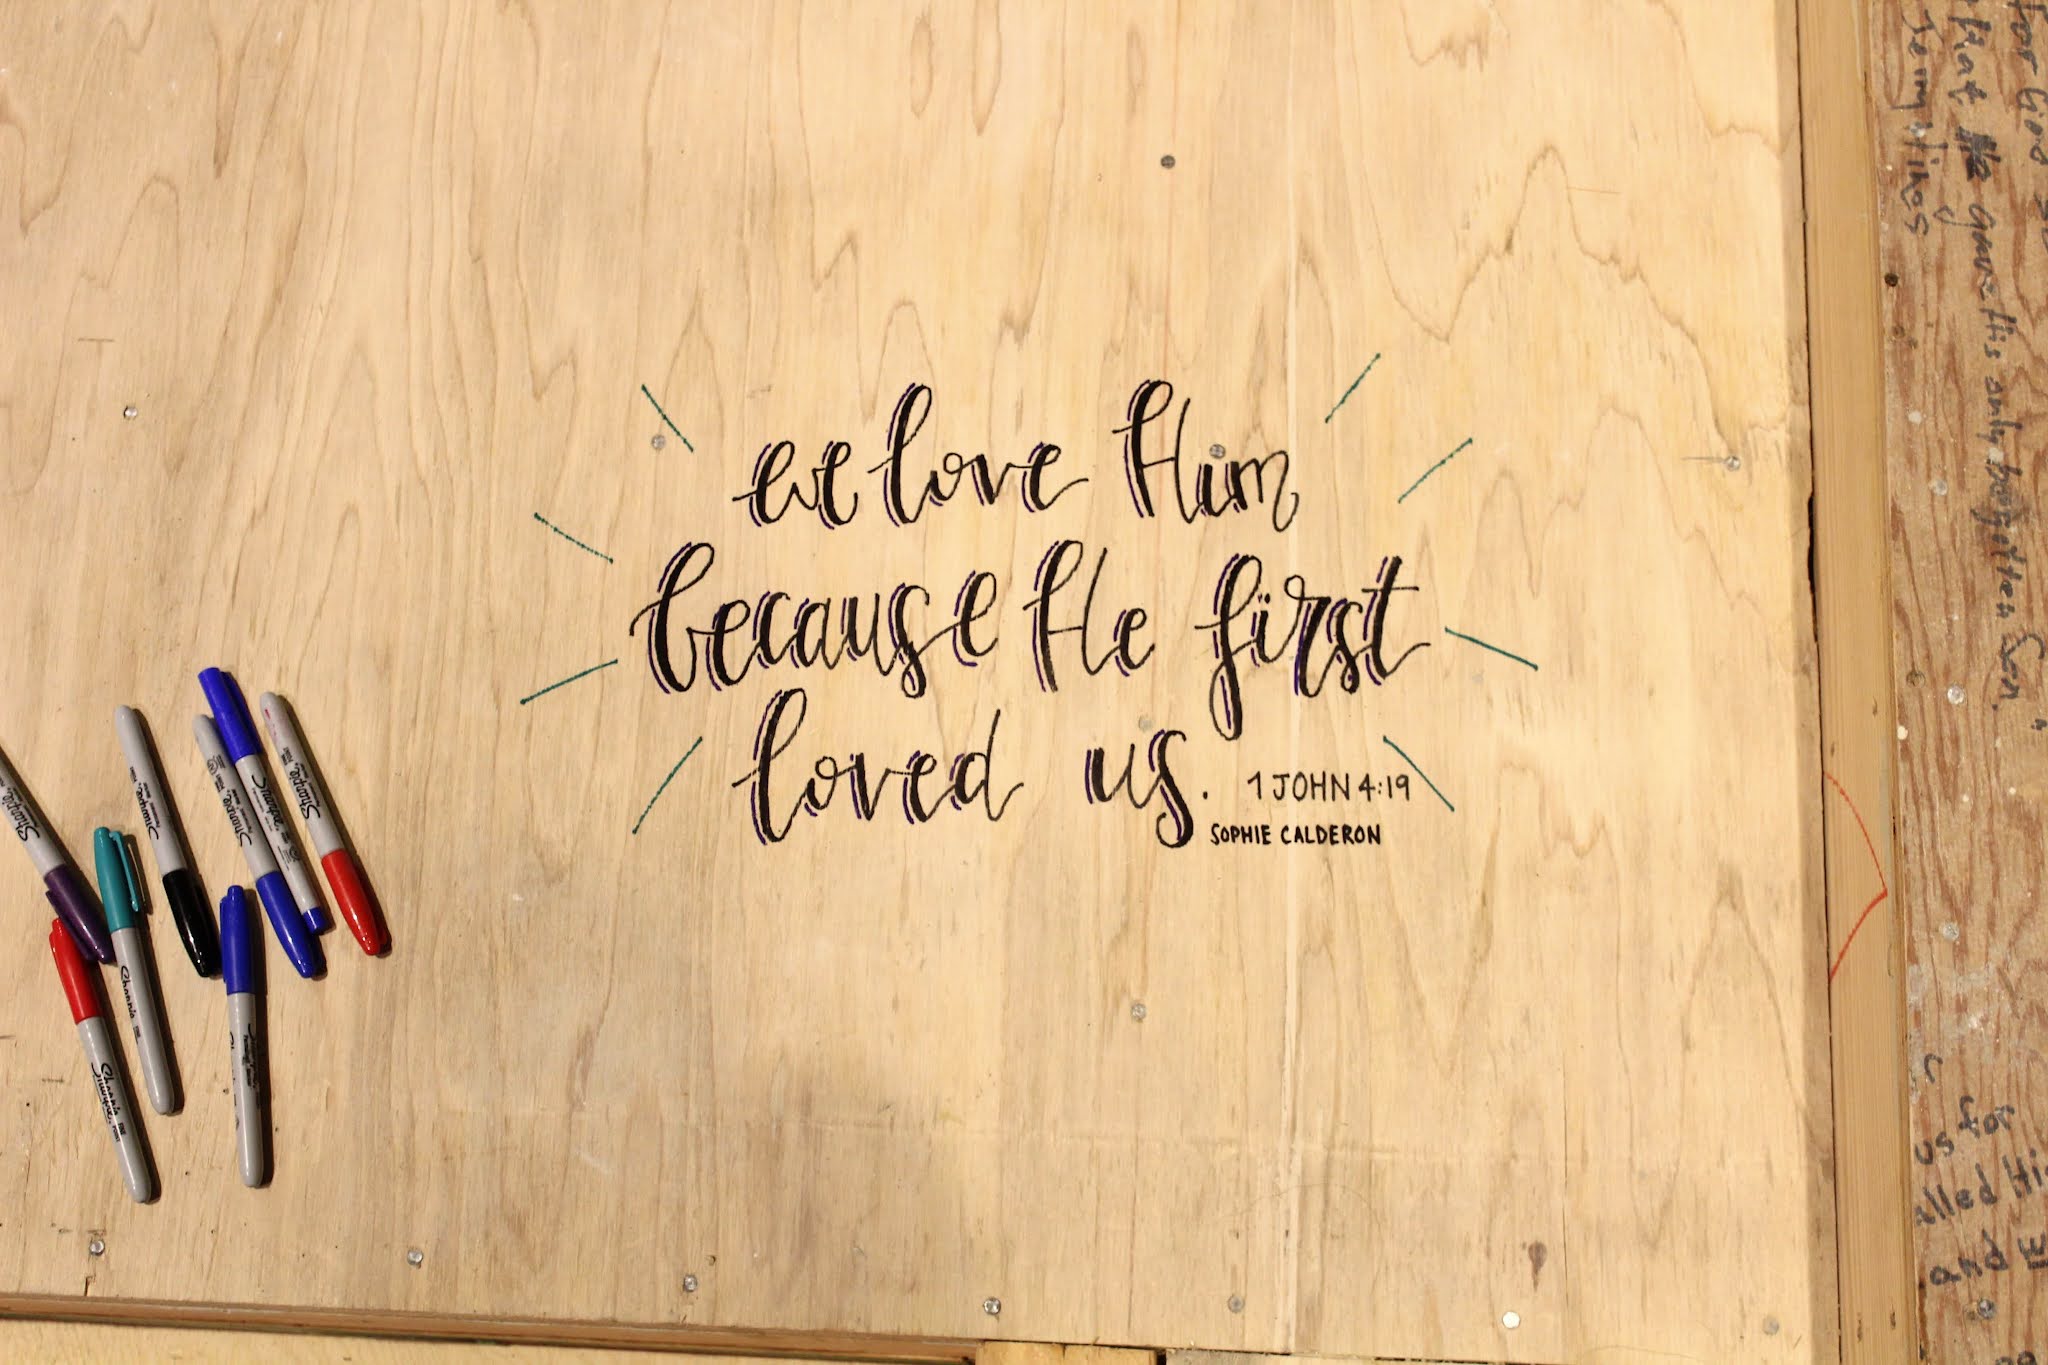 we love Him
because He first
loved us.
1 JOHN 4:19
SOPHIE CALDERON
For God so
that He gave His only begotten Son."
Jenny
us for
and
Sharpie
Sharpie
Sharpie
Sharpie
Sharpie
Sharpie
Sharpie